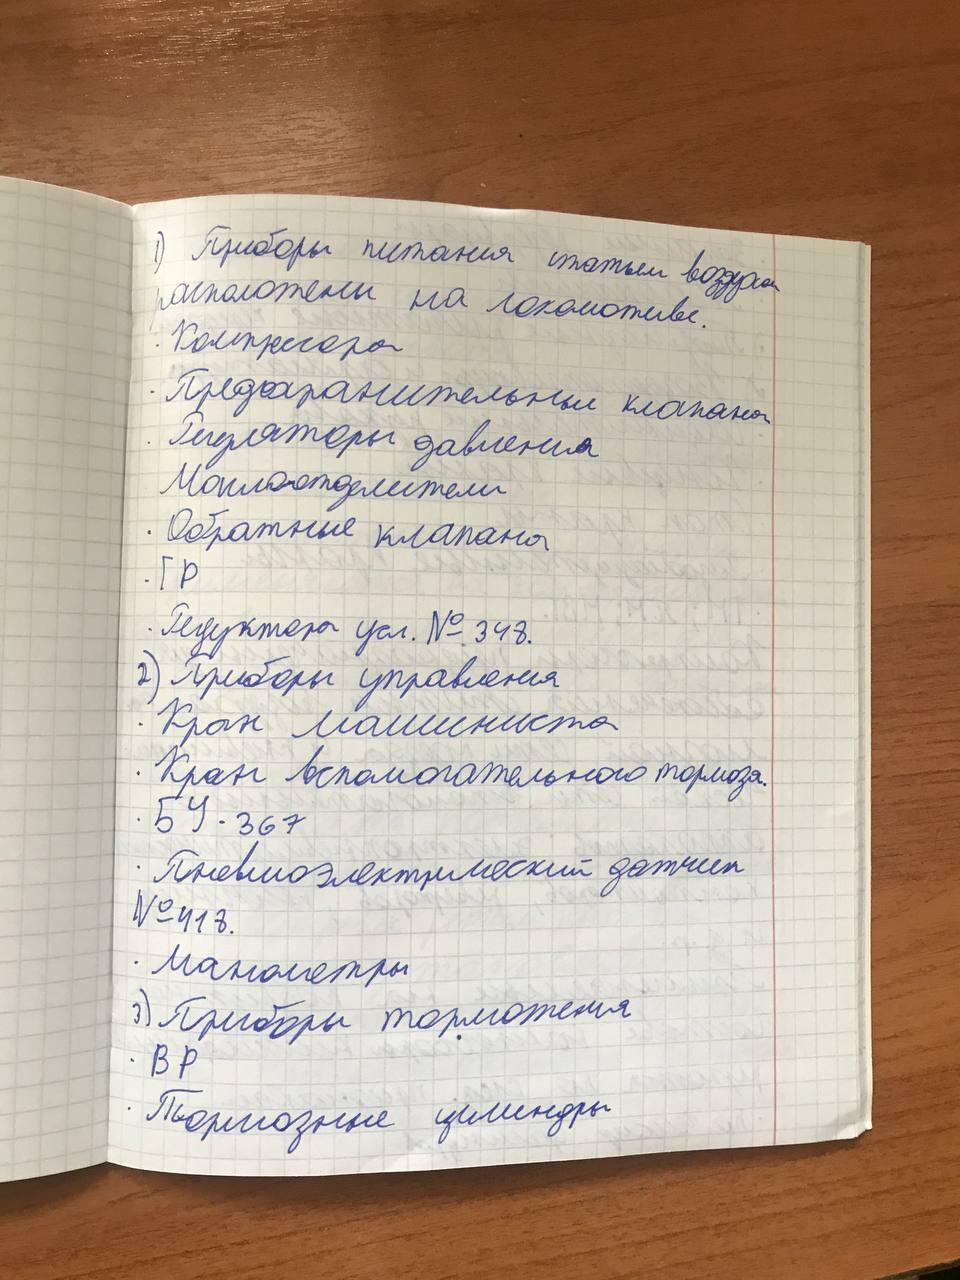 1) Приборы питания сжатым воздухом
расположены на локомотиве.
· Компрессора
· Предохранительные клапана
· Регуляторы давления
Маслоотделители
· Обратные клапана
· ГР
· Редуктора усл. № 348.
2) Приборы управления
· Кран машиниста
· Кран вспомогательного тормоза.
· БУ-367
· Пневмоэлектрический датчик
№418.
· Манометры
3) Приборы торможения
· ВР
· Тормозные цилиндры